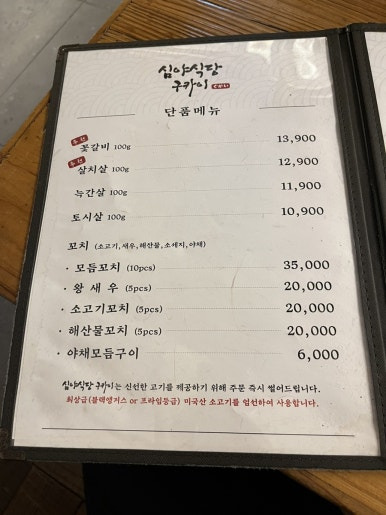 심야식당
구카이
단품메뉴
추천
꽃갈비 100g 13,900
추천
살치살 100g 12,900
늑간살 100g 11,900
토시살 100g 10,900
꼬치 (소고기,새우,해산물,소세지,야채)
· 모듬꼬치 (10pcs) 35,000
· 왕 새 우 (5pcs) 20,000
· 소고기꼬치 (5pcs) 20,000
· 해산물꼬치 (5pcs) 20,000
· 야채모듬구이 6,000
심야식당 구카이는 신선한 고기를 제공하기 위해 주문 즉시 썰어드립니다.
최상급(블랙앵거스 or 프라임등급) 미국산 소고기를 엄선하여 사용합니다.